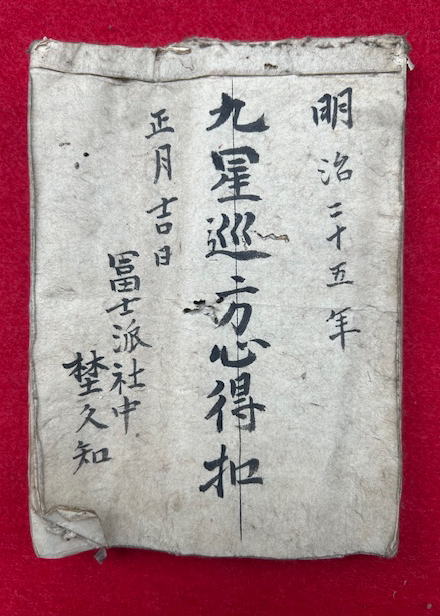 明治二十五年
九星巡方心得扣
正月吉日
冨士派社中
埜久知